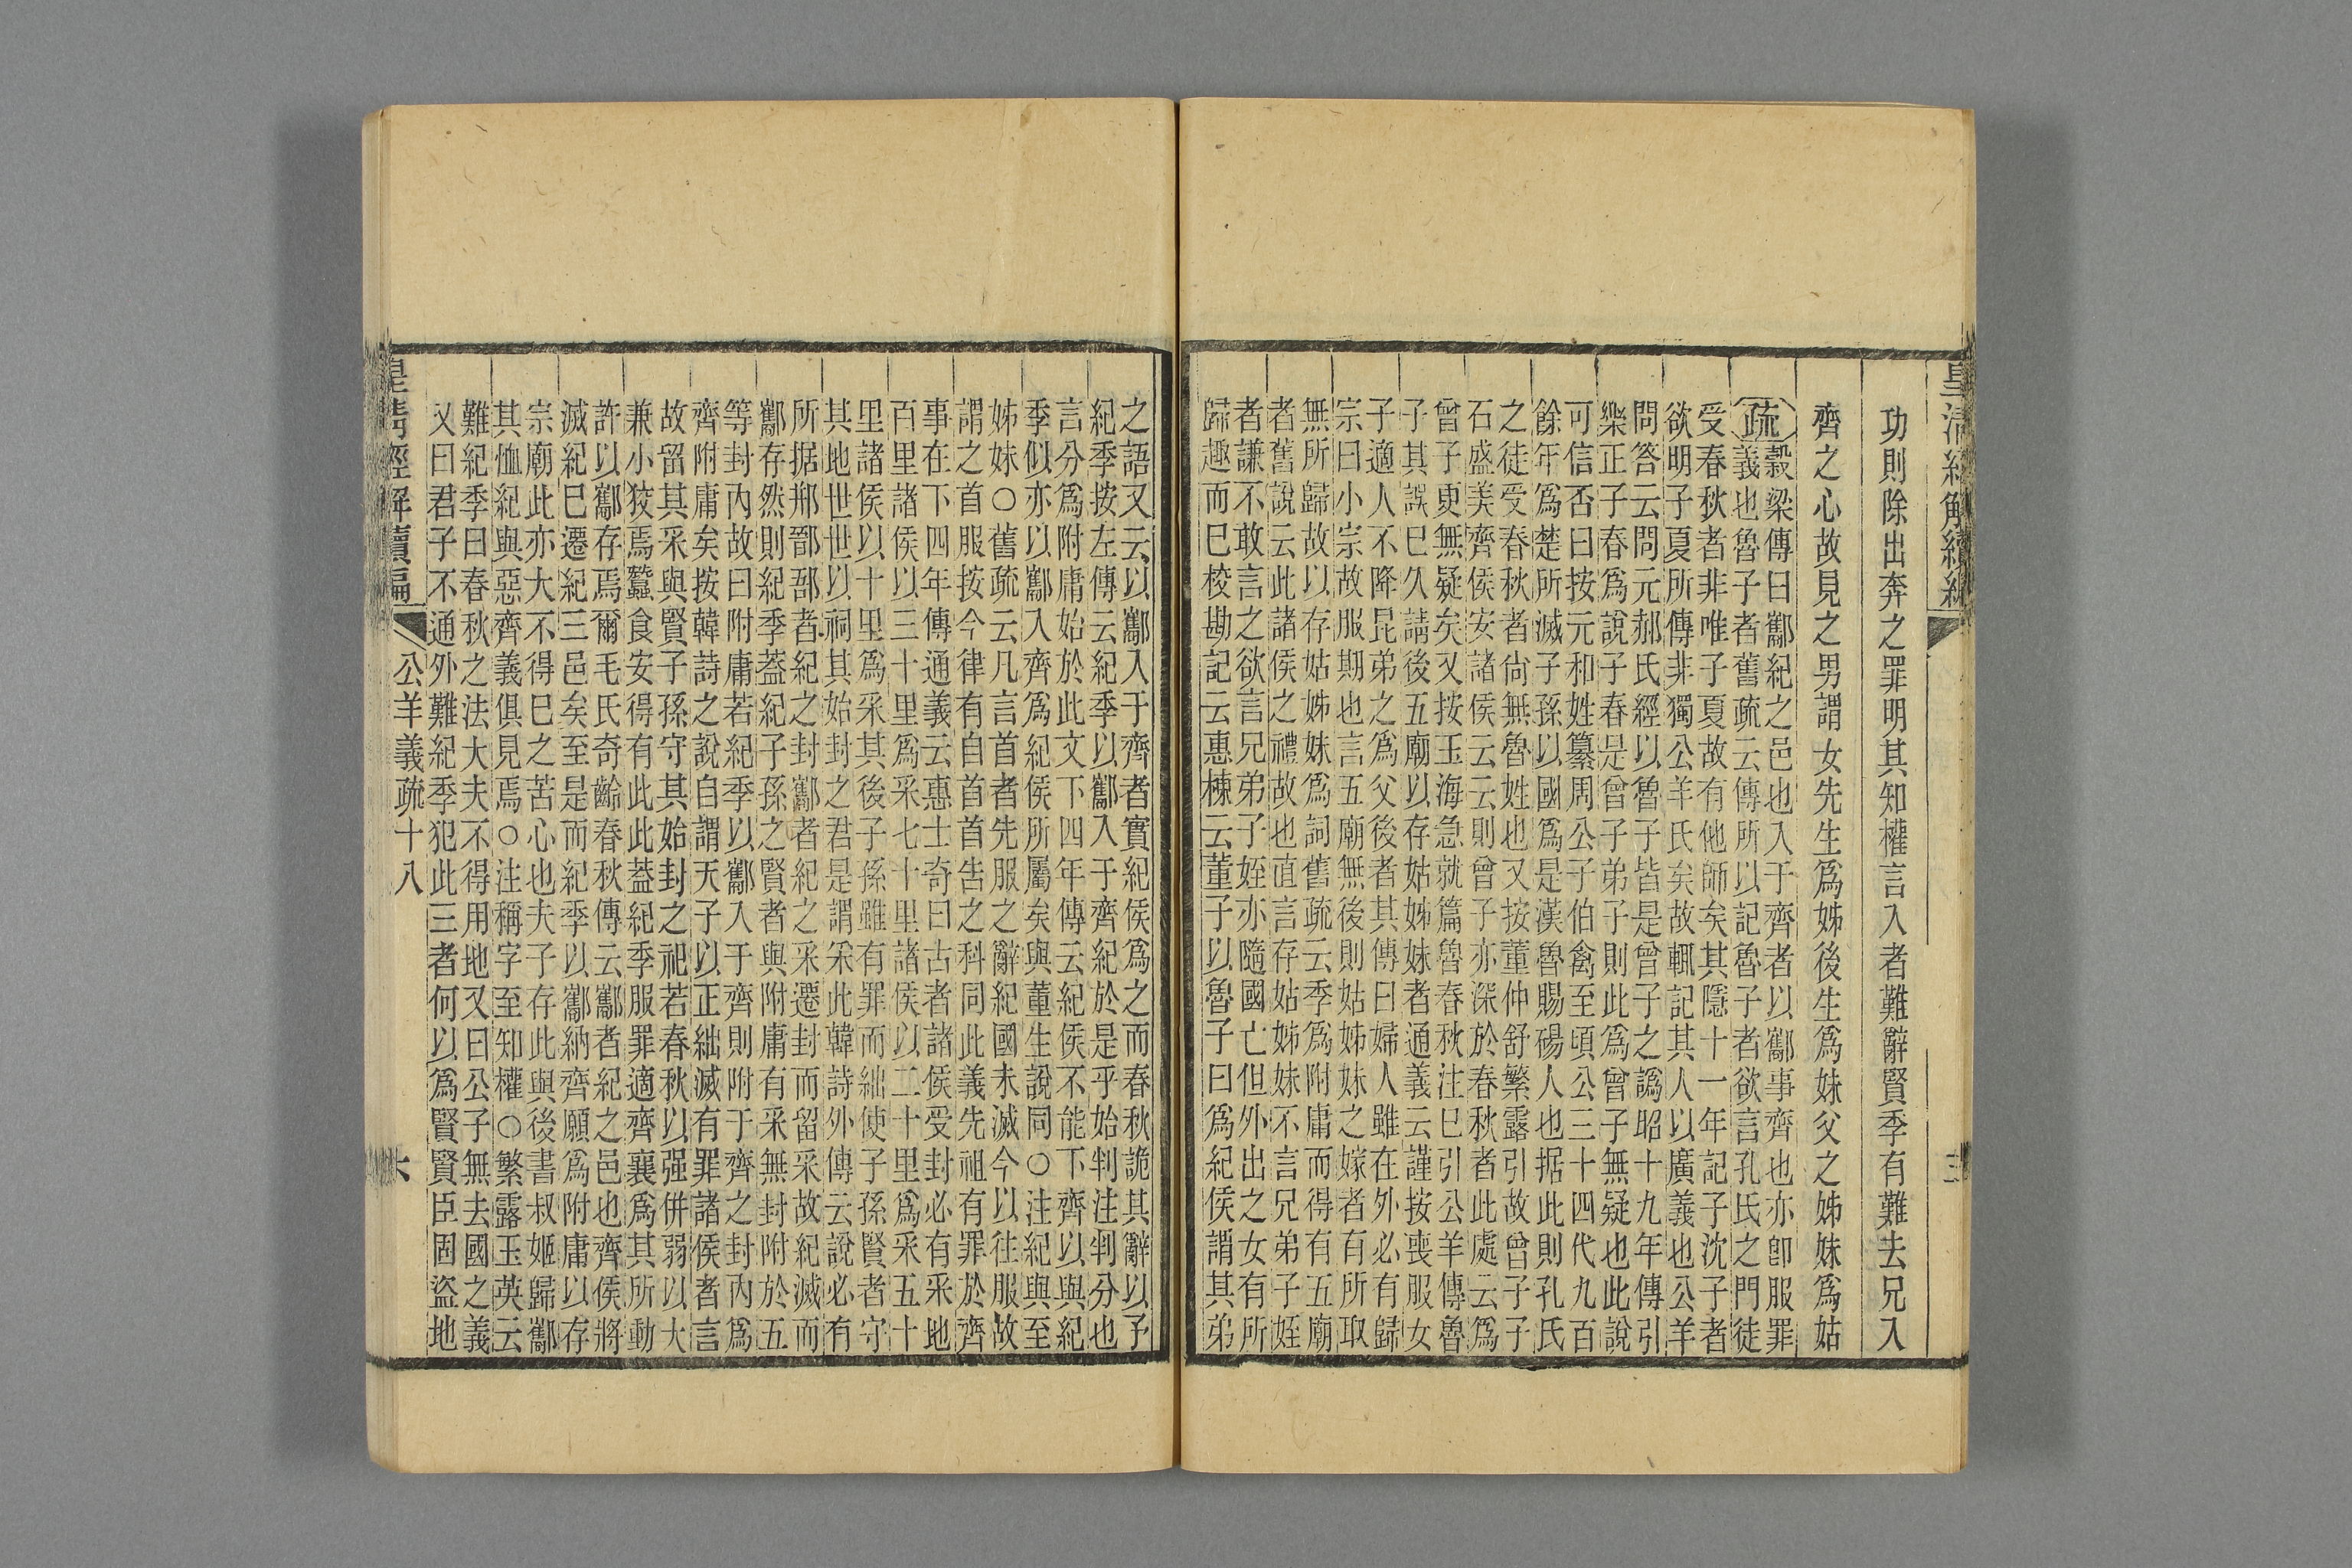 皇清經解續編
功則除出奔之罪明其知權言入者難辭賢季有難去兄入
齊之心故見之男謂女先生爲姊後生爲妹父之姊妹爲姑
疏
穀梁傳曰酅紀之邑也入于齊者以酅事齊也亦卽服罪
義也魯子者舊疏云傳所以記魯子者欲言孔氏之門徒
受春秋者非唯子夏故有他師矣其隱十一年記子沈子者
欲明子夏所傳非獨公羊氏矣故輒記其人以廣義也公羊
問答云問元郝氏經以魯子皆是曾子之譌昭十九年傳引
樂正子春爲說子春是曾子弟子則此爲曾子無疑也此說
可信否曰按元和姓纂周公子伯禽至頃公三十四代九百
餘年爲楚所滅子孫以國爲是漢魯賜碭人也据此則孔氏
之徒受春秋者尙無魯姓也又按董仲舒繁露引故曾子子
石盛美齊侯安諸侯云云則曾子亦深於春秋者此處云爲
曾子更無疑矣又按玉海急就篇魯春秋注巳引公羊傳魯
子其誤巳久請後五廟以存姑姊妹者通義云謹按喪服女
子適人不降昆弟之爲父後者其傳曰婦人雖在外必有歸
宗曰小宗故服期也言五廟無後則姑姊妹之嫁者有所取
無所歸故以存姑姊妹爲詞舊疏云季爲附庸而得有五廟
者舊說云此諸侯之禮故也直言存姑姊妹不言兄弟子姪
者謙不敢言之欲言兄弟子姪亦隨國亡但外出之女有所
歸趣而巳校勘記云惠棟云董子以魯子曰爲紀侯謂其弟
之語又云以酅入于齊者實紀侯爲之而春秋詭其辭以予
紀季按左傳云紀季以酅入于齊紀於是乎始判注判分也
言分爲附庸始於此文下四年傳云紀侯不能下齊以與紀
季似亦以酅入齊爲紀侯所屬矣與董生說同○注紀與至
姊妹○舊疏云凡言首者先服之辭紀國未滅今以往服故
謂之首服按今律有自首首告之科同此義先祖有罪於齊
事在下四年傳通義云惠士奇曰古者諸侯受封必有采地
百里諸侯以三十里爲采七十里諸侯以二十里爲采五十
里諸侯以十里爲采其後子孫雖有罪而絀使子孫賢者守
其地世世以祠其始封之君是謂采此韓詩外傳云說必有
所据郱鄑郚者紀之封酅者紀之采遷封而留采故紀滅而
酅存然則紀季蓋紀子孫之賢者與附庸有采無封附於五
等封內故曰附庸若紀季以酅入于齊則附于齊之封內爲
齊附庸矣按韓詩之說自謂天子以正絀滅有罪諸侯者言
故留其采與賢子孫守其始封之祀若春秋以强併弱以大
兼小狡焉蠶食安得有此此蓋紀季服罪適齊襄爲其所動
許以酅存焉爾毛氏奇齡春秋傳云酅者紀之邑也齊侯將
滅紀巳遷紀三邑矣至是而紀季以酅納齊願爲附庸以存
宗廟此亦大不得巳之苦心也夫子存此與後書叔姬歸酅
其恤紀與惡齊義俱見焉○注稱字至知權○繁露玉英云
難紀季曰春秋之法大夫不得用地又曰公子無去國之義
又曰君子不通外難紀季犯此三者何以爲賢賢臣固盜地
皇淸經解續編
公羊義疏十八